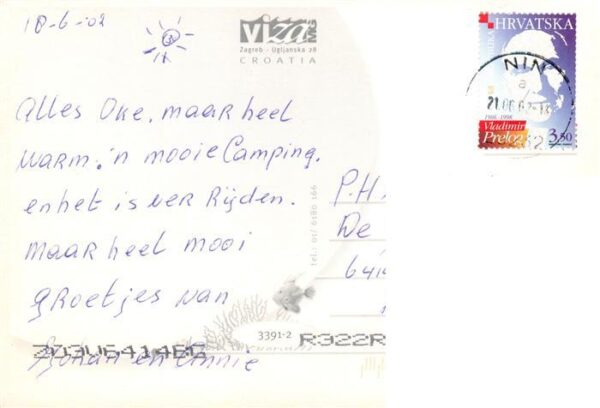 18-6-02
VIZA MG
Zagreb - Ugljanska 28
CROATIA
HRVATSKA
NIN
a
21.06.02-13
1906.-1998.
Vladimir
Prelog
3,50
Alles Oke, maar heel
warm, 'n mooie Camping.
en het is ver Rijden.
maar heel mooi
GRoetjes van
Johan en Annie
P.H.
De
641
tel.: 01/ 6180 166
3391-2
R322R